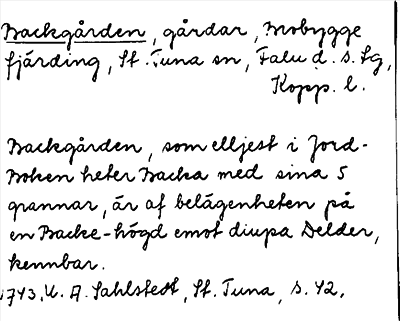 Backgården, gårdar, Brobygge
fjärding, St. Tuna sn, Falu d. s. lg,
Kopp. l.
Backgården, som elljest i Jord-
Boken heter Backa med sina 5
grannar, är af belägenheten på
en Backe-högd emot diupa Delder,
kennbar.
1743. U. A. Sahlstedt, St. Tuna, s. 42.